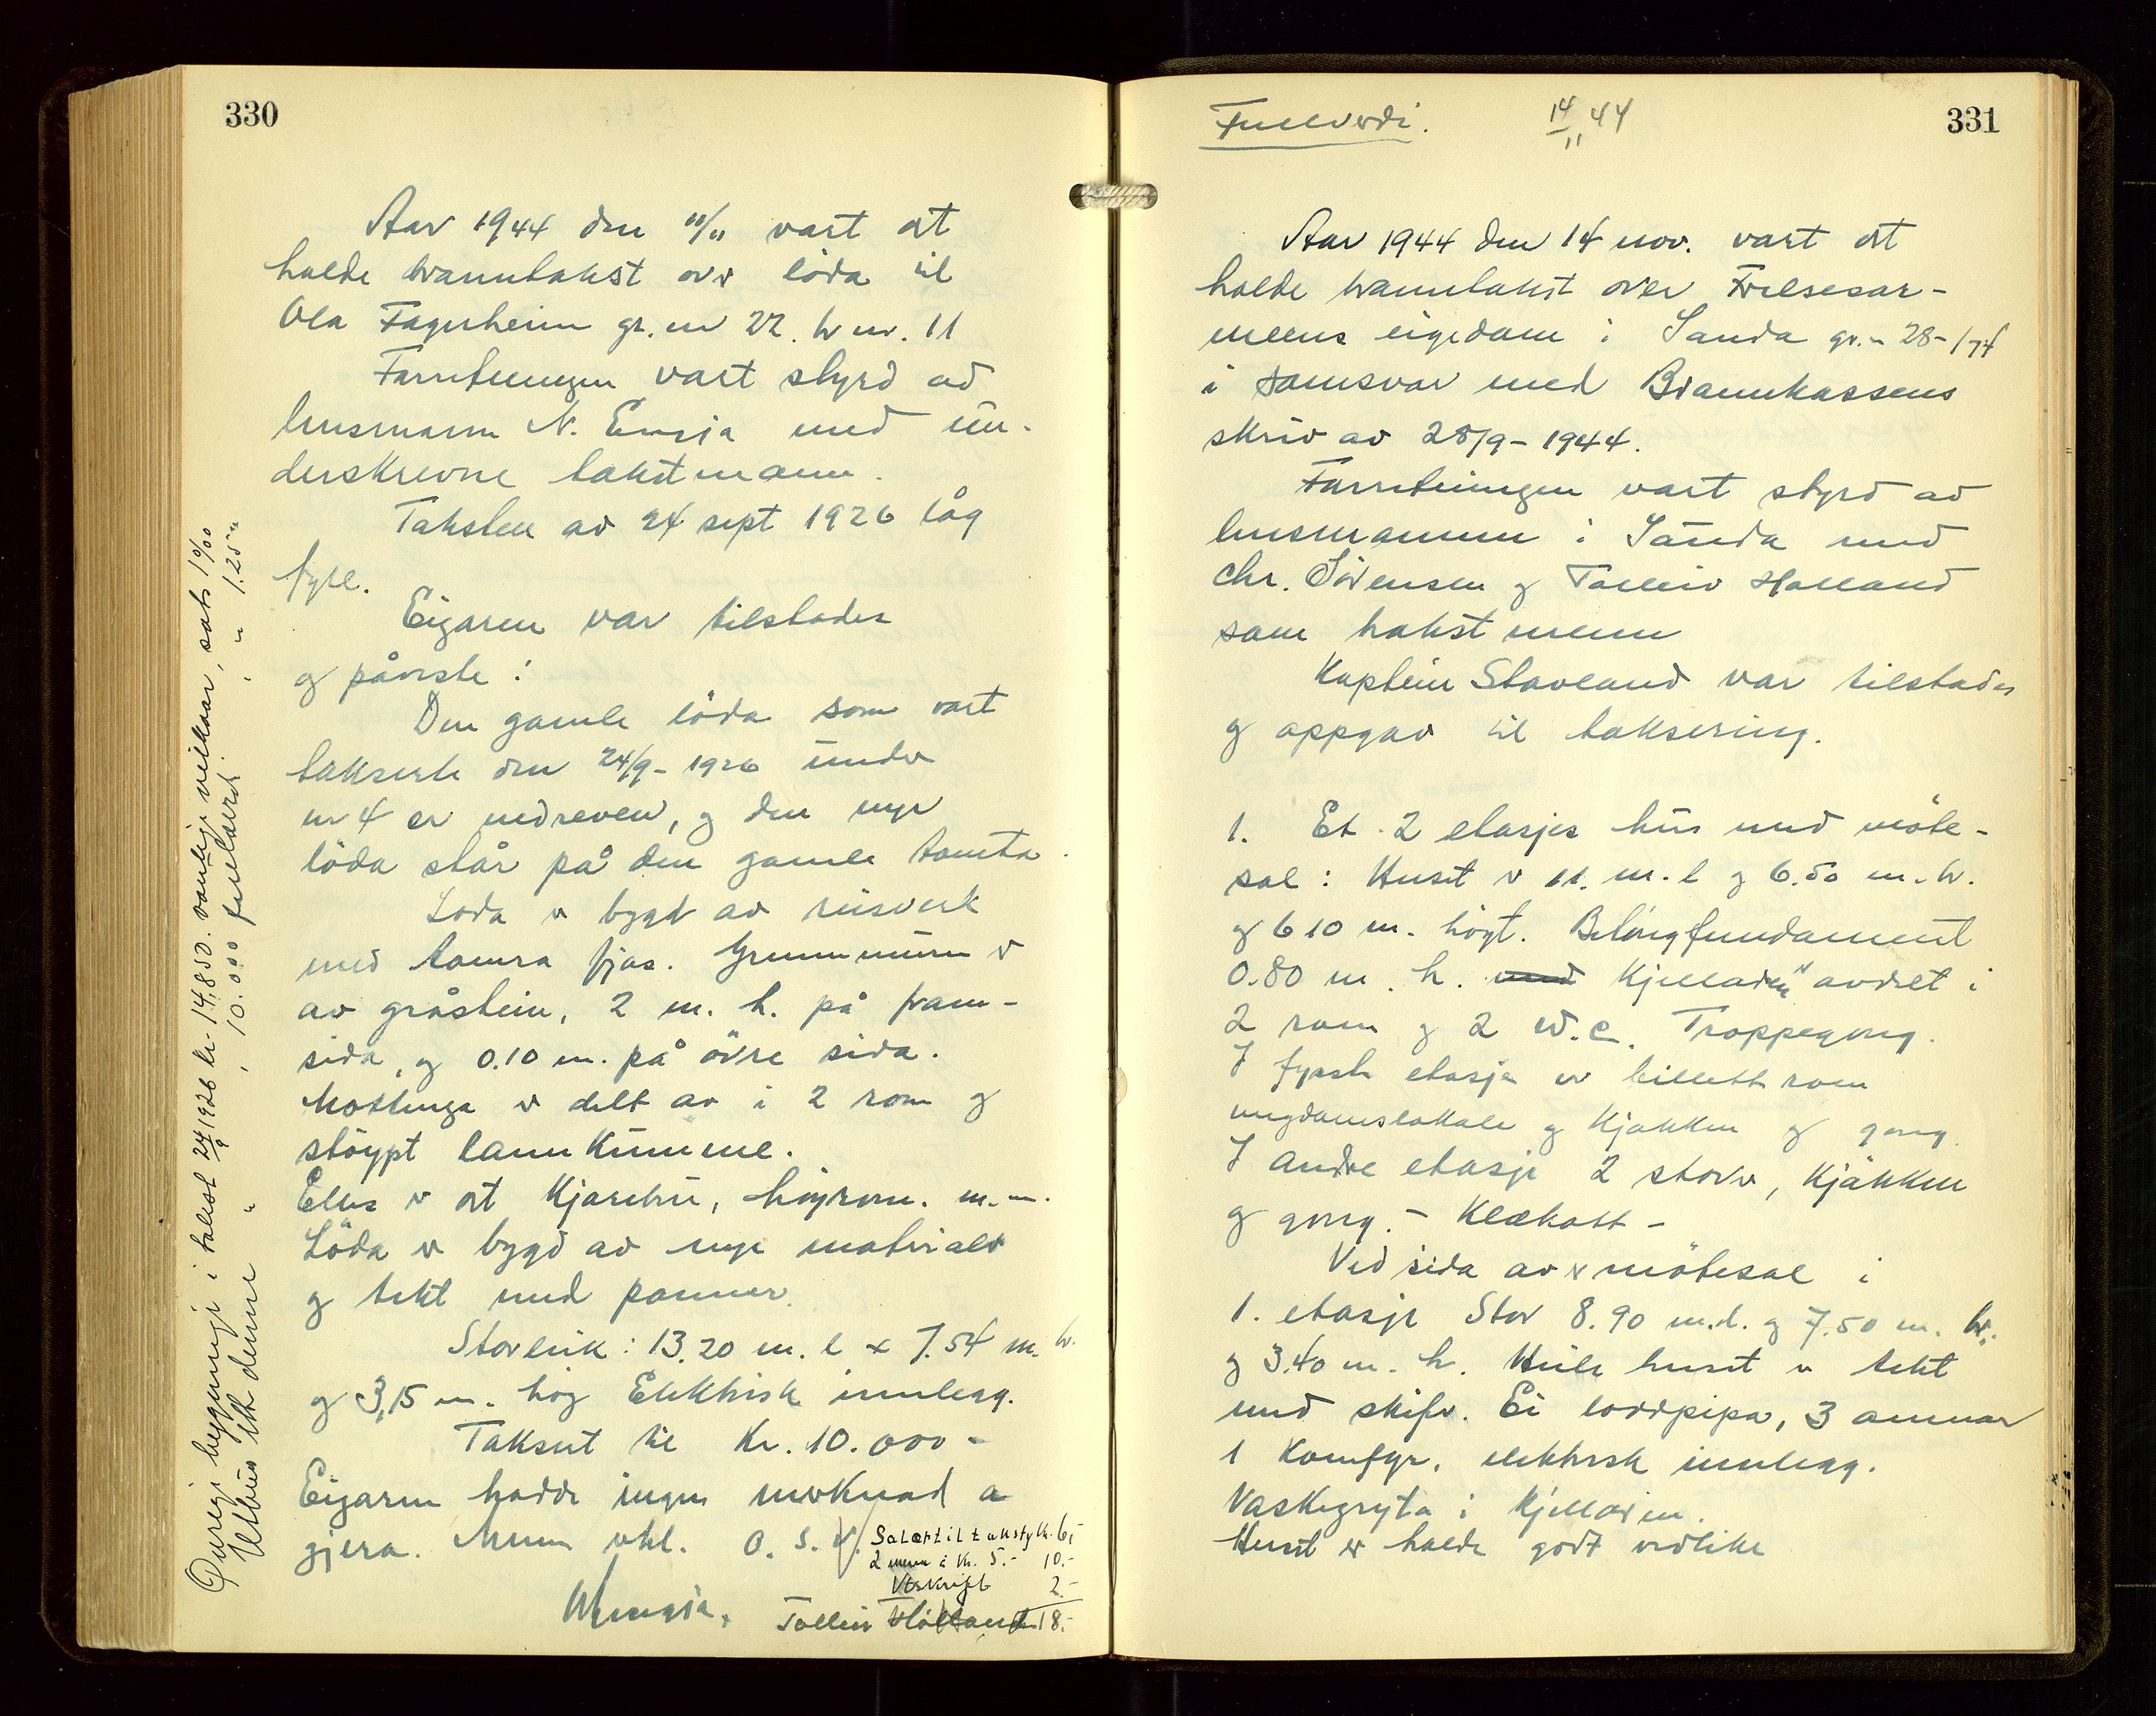 330
Aar 1944 den 11/11 vart det
halde branntakst over löda til
Ola Fagerheim gr. nr 22. br nr. 11
Forretningen vart styrd av
lensmann N. Ersnsja med un-
derskrevne takstmann.
Taksten av 24 sept 1926 låg
fyre.
Eigaren var tilstades
og påviste:
Den gamle löda som vart
takserte den 24/9-1926 under
nr 4 er nedreven, og den nye
löda står på den gamle tomta.
Löda er bygd av reisverk
med tomra fjos. Grunnmuren er
av gråstein, 2 m. h. på fram-
sida, og 0.10 m. på övre sida.
Möttinga er delt av i 2 rom og
stöypt lannkumme.
Elles er det kjørebru, höyrom. m.m.
Löda er bygd av nye materialer
og tekt med panner.
Storleik: 13.20 m. l x 7.54 m. br.
og 3,15 m. høg Elektrisk innlegg.
Taksert til Kr. 10.000-
Eigaren hadde ingen merknad a
gjera. 
O. S. V.
Salær til takstfyk. 6,-
2 menn á kr. 5.- 10.-
Utskrift 2.-
18.-
Tolleiv Holland
Övrige bygningi i takst 24/9 1926 kr 14,850. vanlige vilkaar, sats 1 0/00
Uthus ith denne " , 10.000 fullverd. , " 1.25 "
331
Fullverdi. 14/11 44
Aar 1944 den 14 nov. vart det
halde branntakst over Frelsesar-
meens eigedom i Sauda gr.n 28-/74
i samsvar med Brannkassens
skriv av 28/9-1944.
Forretningen vart styrd av
lensmannen i Sauda med
Chr. Sörensen og Tolleiv Holland
som takstmenn
Kaptein Stavland var tilstades
og oppgav til taksering.
1. Et 2 etasjes hus med möte-
sal: Huset er 11. m. l og 6.50 m. br.
og 6 10 m. högt. Betongfundament
0.80 m. h. med Kjellaren avdelt i
2 rom og 2 W.C. Troppegong.
I fyrste etasje er billettrom
ungdomslokale og Kjökken og gong.
I andre etasje 2 stover, Kjökken
og gong. - Klækott -
Ved sida av er mötesal i
1. etasje Stor 8.90 m.l. og 7.50 m. br.
og 3.40 m. h. Heile huset er tekt
med skifer. Ei loddpipa, 3 omnar
1 Komfyr, elektrisk innlegg.
Vaskegryta i kjellaren.
Huset er halde godt vedlike